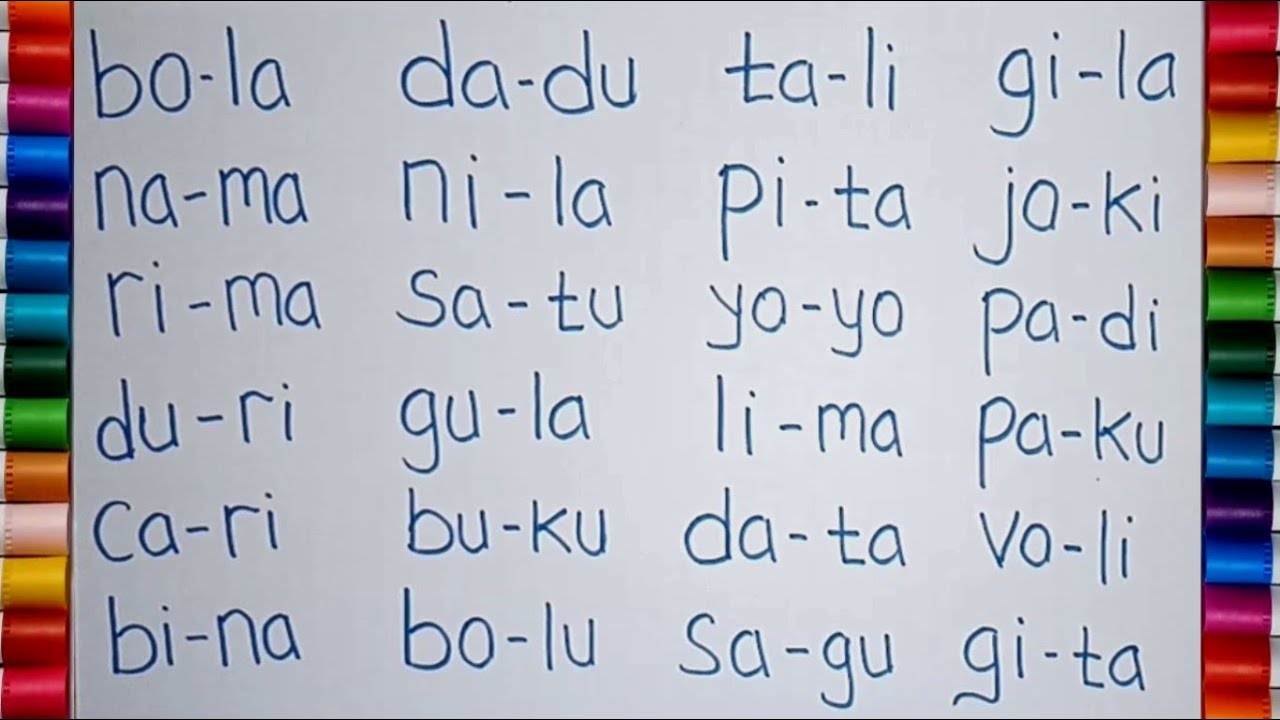 bo-la da-du ta-li gi-la
na-ma ni-la pi-ta jo-ki
ri-ma sa-tu yo-yo pa-di
du-ri gu-la li-ma pa-ku
ca-ri bu-ku da-ta vo-li
bi-na bo-lu sa-gu gi-ta